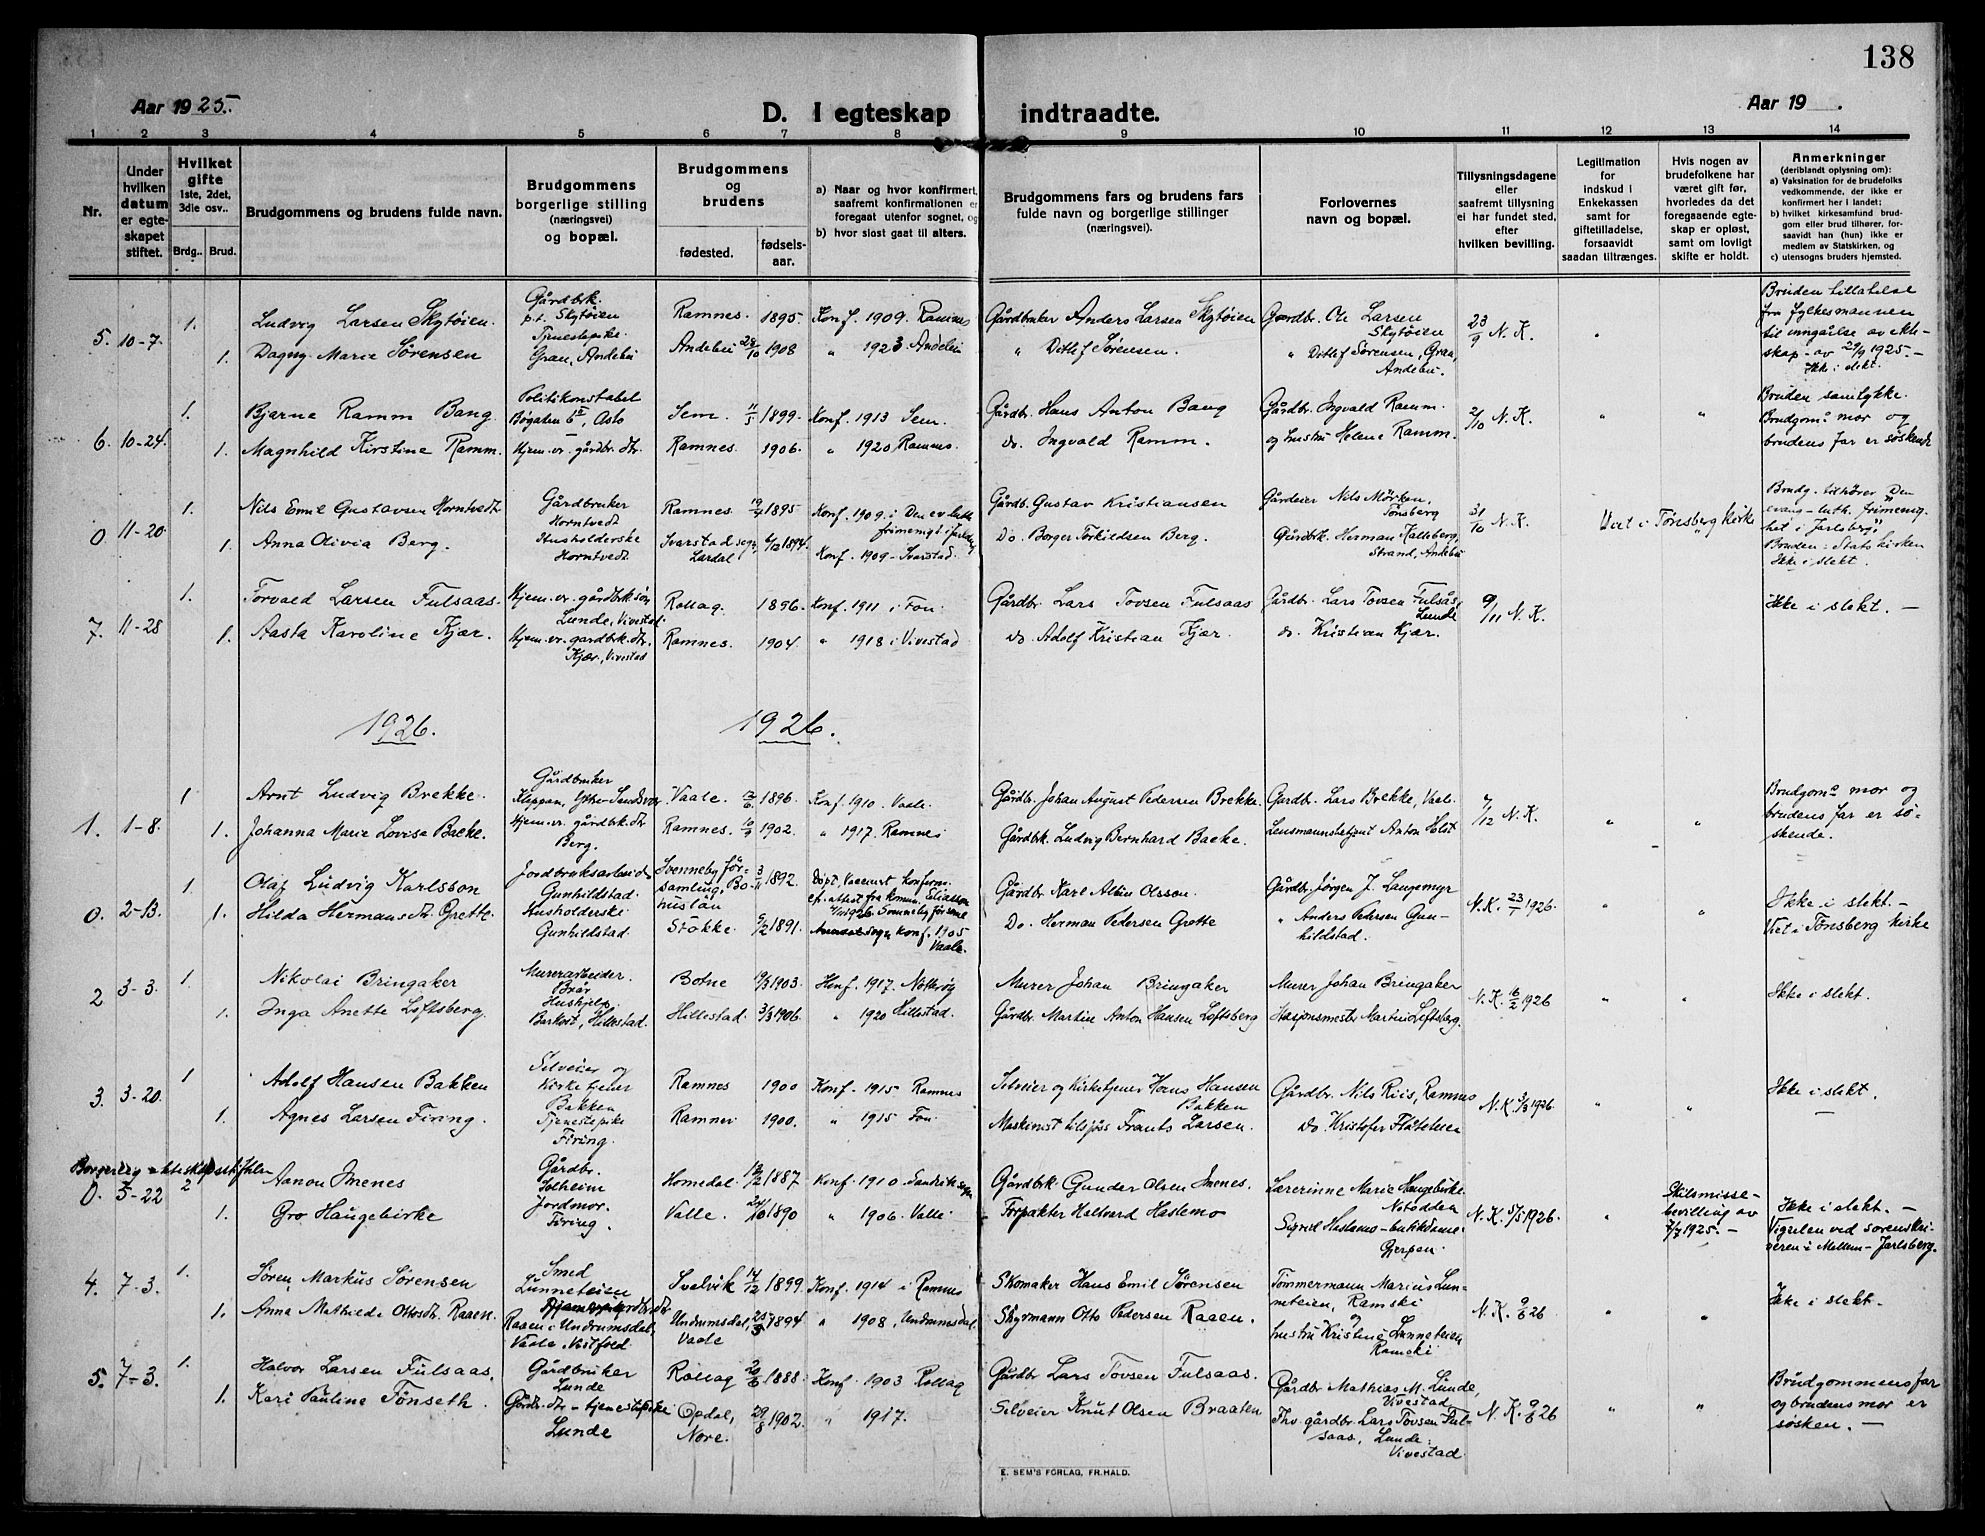 138
Aar 1925.
D. I egteskap indtraadte.
Aar 19 .
1 2 3 4 5 6 7 8 9 10 11 12 13 14
Nr.
Under hvilken datum er egteskapet stiftet.
Hvilket gifte 1ste, 2det, 3die osv..
Brdg.. Brud.
Brudgommens og brudens fulde navn.
Brudgommens borgerlige stilling (næringsvei) og bopæl.
Brudgommens og brudens
fødested. fødselsaar.
a) Naar og hvor konfirmert, saafremt konfirmationen er foregaat utenfor sognet, og
b) hvor sidst gaat til alters.
Brudgommens fars og brudens fars fulde navn og borgerlige stillinger (næringsvei).
Forlovernes navn og bopæl.
Tillysningsdagene eller saafremt tillysning ei har fundet sted, efter hvilken bevilling.
Legitimation for indskud i Enkekassen samt for giftetilladelse, forsaavidt saadan tiltrænges.
Hvis nogen av brudefolkene har været gift før, hvorledes da det foregaaende egteskap er opløst, samt om lovligt skifte er holdt.
Anmerkninger (deriblandt oplysning om):
a) Vaksination for de brudefolks vedkommende, der ikke er konfirmert her i landet;
b) hvilket kirkesamfund brudgom eller brud tilhører, forsaavidt han (hun) ikke er medlem av Statskirken, og
c) utensogns bruders hjemsted.
5. 10-7. 1. Ludvig Larsen Skytøien. Gårdbrk. p.t. Skytøien Ramnes. 1895. Konf. 1909. Ramnes Gårdbruker Anders Larsen Skytøien Gårdbr. Ole Larsen Skytøien 23/9 N. K. Bruden tillatelse fra fylkesmannen til inngåelse av ekteskap av 29/9 1925. — Ikke i slekt.
1. Dagny Marie Sørensen Tjenestepike. Gran, Andebu Andebu 28/10 1908 " 1923 Andebu " Ditlef Sørensen. " Ditlef Sørensen, Gran, Andebu.
6. 10-24. 1. Bjarne Ramm Bang. Politikonstabel Bøgaten 6 II, Oslo Sem. 11/5 1899. Konf. 1913 Sem. Gårdbr. Hans Anton Bang Gårdbr. Ingvald Ramm. 2/10 N. K. " " Bruden samtykke. Brudgoms mor og brudens far er søskende
1. Magnhild Kirstine Ramm. Hjem. vr. gårdbr. dtr. Ramnes. 1906. " 1920 Ramnes. do. Ingvald Ramm. og hustru Helene Ramm.
0 11-20. 1. Nils Emil Gustavsen Horntvedt Gårdbruker Horntvedt Ramnes. 19/4 1895 Konf. 1909. i Den ev. luth. frimenigt i Jarlsberg Gårdb. Gustav Kristiansen Gårdeier Nils Mørken, Tønsberg 31/10 N. K. Viet i Tønsberg kirke Brudg. tilhører "Den evang.-luth. frimenighet i Jarlsberg". Bruden: Statskirken Ikke i slekt.
1. Anna Olivia Berg. Husholderske Horntvedt Svarstad sogn, Lardal 6/12 1894. Konf. 1909 - Svarstad. Do. Borger Torkildsen Berg. Gårdbrk. Herman Kalleberg, Strand, Andebu
7. 11-28 1. Torvald Larsen Fulsaas. Hjem. vr. gårdbrk søn Lunde, Vivestad. Rollag. 1896. Konf. 1911 i Fon. Gårdbr. Lars Tovsen Fulsaas Gårdbr. Lars Tovsen Fulsås, Lunde 9/11 N. K. Ikke i slekt. —
1. Aasta Karoline Kjær. Hjem. vr. gårdbrk. dtr. Kjær, Vivestad Ramnes. 1904. " 1918 i Vivestad do. Adolf Kristian Kjær. do. Kristian Kjær.
1926. 1926.
1. 1-8. 1 Arnt Ludvig Brekke. Gårdbruker Kleppan, Vaale. 1896. Konf. 1910. Vaale. Gårdbr. Johan August Pedersen Brekke. Gårdbr. Lars Brekke, Vaale. 7/12 N. K. " " Brudgoms mor og brudens far er søskende.
1. Johanna Marie Lovise Bache. Hjem. vr. gårdbrk. dtr Berg. Ramnes. 10/9 1902. " 1917. Ramnes Gårdbrk. Ludvig Bernhard Bache. Lensmannsbetjent Anton Holst
0. 2-13. 1. Olaf Ludvig Karlsson Jordbruksarbeider Gunhildstad. Svenneby församling, Bohuslän 3/11 1892. Døpt, Vaccinert, konfirm. ef. attest fra komm. Gårdbr. Karl Albin Olsson. Gårdbr. Jørgen J. Langemyr N. K. 23/1 1926. " " Ikke i slekt. — Viet i Tønsberg kirke
1. Hilda Hermansdtr. Grette. Husholderske Gunhildstad. Stokke. 6/2 1891. konf. 1905 Vaale. Do. Herman Pedersen Grette " Anders Pedersen Gunhildstad.
2 3-3. 1. Nikolai Bringaker Murerarbeider. Brår Botne 19/3 1903. Konf. 1917. Nøtterøy Murer Johan Bringaker Murer Johan Bringaker N. K. 16/2 1926 " " Ikke i slekt.
1. Inga Anette Loftsberg. Hushjelp. Barkost, Hillestad. Hillestad. 3/3 1906. " 1920 Hillestad. Gårdbr. Martin Anton Hansen Loftsberg Stasjonsmester Martin Loftsberg.
3. 3-20. 1 Adolf Hansen Bakken Selveier og Kirketjener Bakken Ramnes 1900 Konf. 1915 Ramnes Selveier og Kirketjener Hans Hansen Bakken Gårdbr. Nils Riis, Ramnes N. K. 3/3 1926. " " Ikke i slekt. —
1. Agnes Larsen Firing. Tjenestepike Firing. Ramnes 1900. " 1915 Fon Maskinist tilsjøs Frants Larsen. Do Kristofer Flåteteien
Borgerlig ekteskapsstiftelse
0. 5-22 2 Aanon Imenes Gårdbr. Solheim Homedal. 12/2 1887 Konf. 1910. Landvik sogn Gårdbrk. Gunder Olsen Imenes. Lærerinne Marie Haugebirke. Notodden N. K. 5/5 1926. " Skilsmissebevilling av 7/7 1925. — Ikke i slekt. — Vigselen ved sorenskriveren i Mellem-Jarlsberg.
1. Gro Haugebirke Jordmor. Firing. Valle. 24/10 1890 " 1906. Valle. Forpakter Halvard Haslemo Sigrid Haslemo - butikdame Gjerpen.
4. 7-3. 1. Søren Markus Sørensen Smed Lunneteien Svelvik 14/12 1899. Konf. 1914 i Ramnes Skomaker Hans Emil Sørensen Tømmermann Marius Lunneteien, Ramski N. K. 9/6 26 " " Ikke i slekt.
1. Anna Mathilde Ottosdt. Raaen. Raaen i Undrumsdal, Vaale, Vestfold Undrumsdal, Vaale 25/3 1894 " 1908, Undrumsdal. Styrmann Otto Pedersen Raaen. og hustru Kristine Lunneteien Ramski
5. 7-3. 1. Halvor Larsen Fulsaas. Gårdbruker Lunde Rollag 20/6 1888. Konf. 1903 Rollag Gårdbr Lars Tovsen Fulsaas. Gårdbr. Mathias M. Lunde, Vivestad N. K. 9/6 26 " " Brudgommens far og brudens mor er søsken. —
1. Kari Pauline Tönseth. Gårdbr. dtr - tjenestepike Lunde Opdal, Nore. 29/8 1902. " 1917. Selveier Knut Olsen Braaten Fhv. gårdbr. Lars Tovsen Fulsaas, Lunde, Vivestad
E. SEM'S FORLAG, FR.HALD.